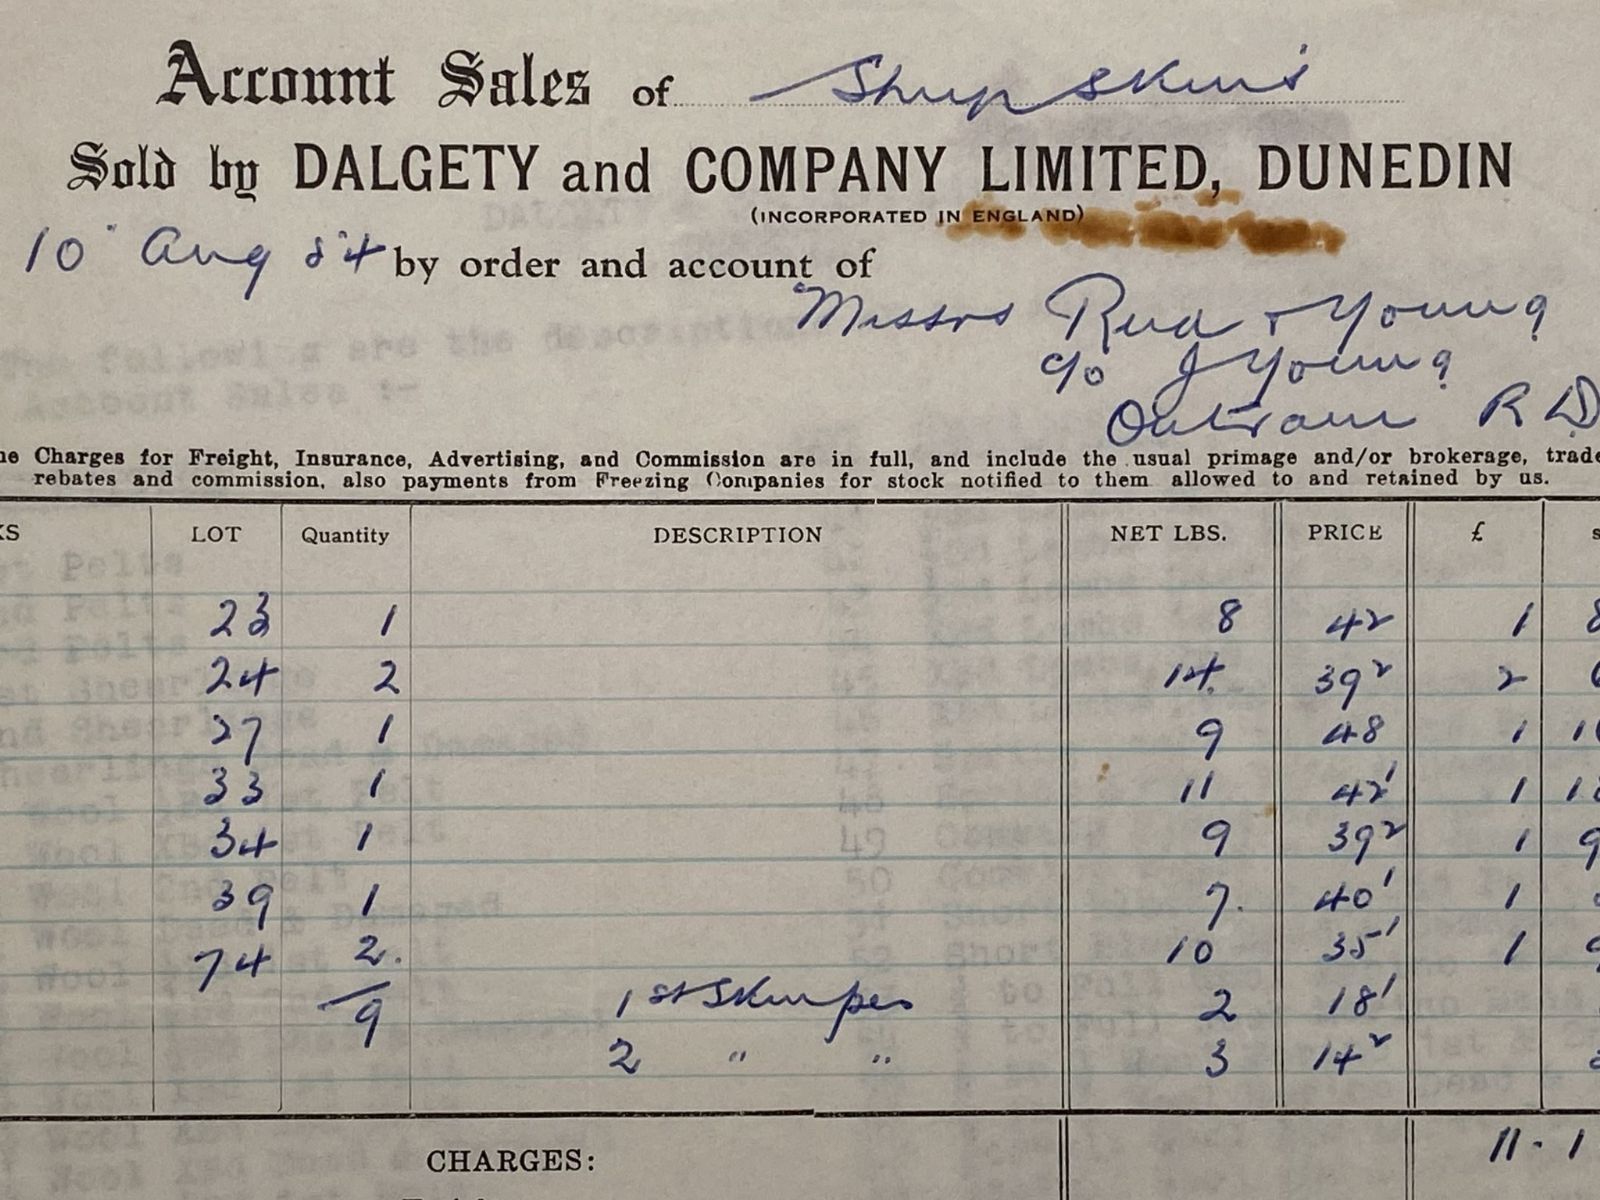 Account Sales of Sheepskins
Sold by DALGETY and COMPANY LIMITED, DUNEDIN
(INCORPORATED IN ENGLAND)
10 Aug 54 by order and account of
Messrs Reid & Young
c/o J Young
Outram R D
he Charges for Freight, Insurance, Advertising, and Commission are in full, and include the usual primage and/or brokerage, trade
rebates and commission, also payments from Freezing Companies for stock notified to them allowed to and retained by us.
KS LOT Quantity DESCRIPTION NET LBS. PRICE £ s
23 1 8 42 1 8
24 2 14 39² 2
27 1 9 48 1
33 1 11 42¹ 1
34 1 9 39² 1 9
39 1 7 40¹ 1
74 2 10 35¹ 1 9
9 1st 2 18¹
2 " " 3 14²
11 - 1
CHARGES: